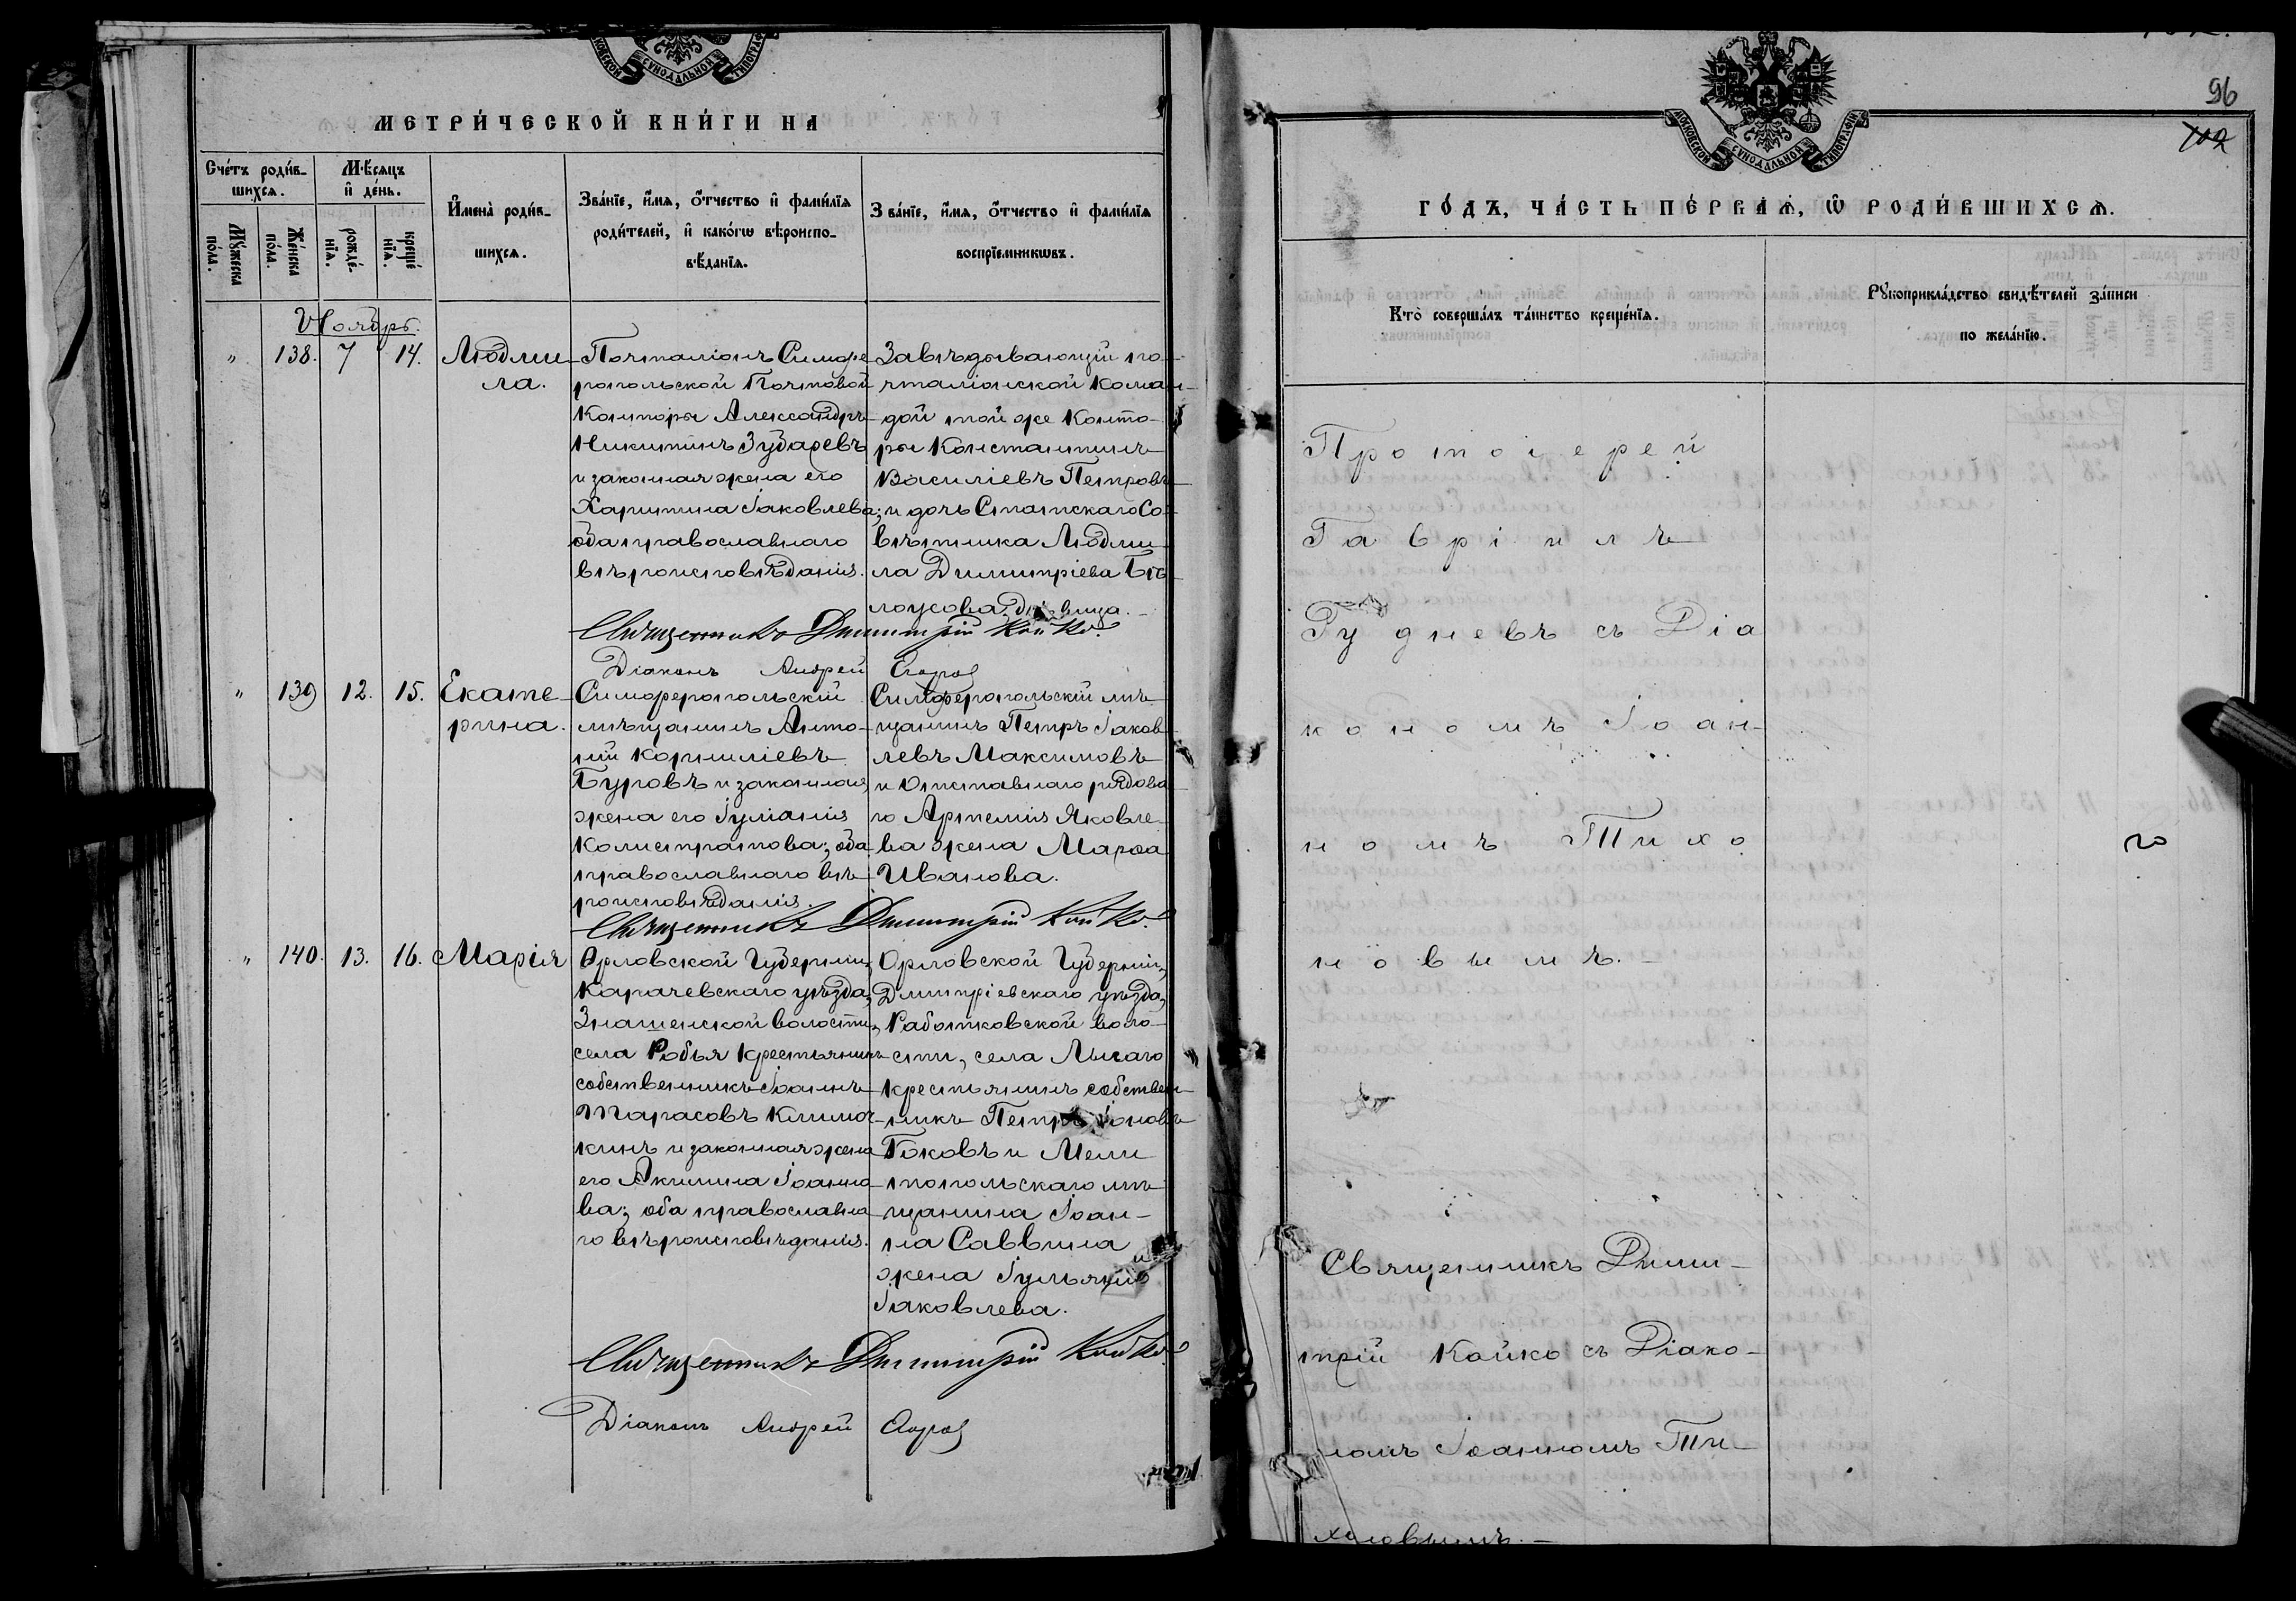 МЕТРИ́ЧЕСКОЙ КНИ́ГИ НА
Сче́тъ роди́в-
шихся.
Мѣ́сяцъ
и де́нь.
Мꙋ́жеска
по́ла.
Же́нска
по́ла.
рожде́-
нїя.
креще́
нїя.
И҆мена̀ роди́в-
шихся.
Зва́нїе, и҆́мя, ѻ҆́тчество и҆ фами́лїя
роди́телей, и҆ како́гѡ вѣроиспо-
вѣ́данїя.
Зва́нїе, и҆́мя, ѻ҆́тчество и҆ фами́лїя
воспрїе́мникѡвъ.
Ноябрь.
" 138. 7 14. Людми-
ла.
Почталіонъ Симфе
ропольской Почтовой
Конторы Александръ
Никитинъ Зубаревъ
и законная жена его
Харитина Іаковлева;
оба православнаго
вѣроисповѣданія.
Завѣдывающій по-
чталіонской коман-
дой той же Конто-
ры Константинъ
Василіевъ Петровъ
и дочь Статскаго Со-
вѣтника Людми-
ла Димитріева Бѣ-
лоусова, дѣвица.
Священникъ Димитрій Койко.
Діаконъ Андрей
" 139 12. 15. Екате-
рина.
Симферопольскій
мѣщанинъ Анто-
ній Корниліевъ
Буровъ и законная
жена его Іуліанія
Калистратова; оба
православнаго вѣ-
роисповѣданія.
Симферопольскій мѣ-
щанинъ Петръ Іаков-
левъ Максимовъ
и Отставнаго рядова-
го Артемія Яковле-
ва жена Марѳа
Иванова.
Священникъ Димитрій Койко.
" 140. 13. 16. Марія
Орловской Губерніи,
Карачевскаго уѣзда,
волости,
села Робья крестьянинъ
собственникъ Іоаннъ
Тарасовъ Климо-
кинъ и законная жена
его Акилина Іоанно-
ва; оба православна-
го вѣроисповѣданія.
Орловской Губерніи,
Дмитріевскаго уѣзда,
воло-
сти, села
крестьянинъ собствен-
никъ Петръ Іоновъ
Гоковъ и Мели-
топольскаго мѣ-
щанина Іоан-
на Саввина
жена Іульянія
Іаковлева.
Священникъ Димитрій Койко.
Діаконъ Андрей
96
102
ГО́ДЪ, ЧА́СТЬ ПЕ́РВАЯ, Ѡ҆ РОДИ́ВШИХСЯ.
Кто̀ соверша́лъ та́инство креще́нїя.
Рꙋкоприкла́дство свидѣ́телей за́писи
по жела́нїю.
Протоіерей
Гавріилъ
Рудневъ съ Діа
кономъ Іоан-
номъ Тихо
новымъ.
Священникъ Дими-
трій Койко съ Діако-
номъ Іоанномъ Ти-
хоновымъ.